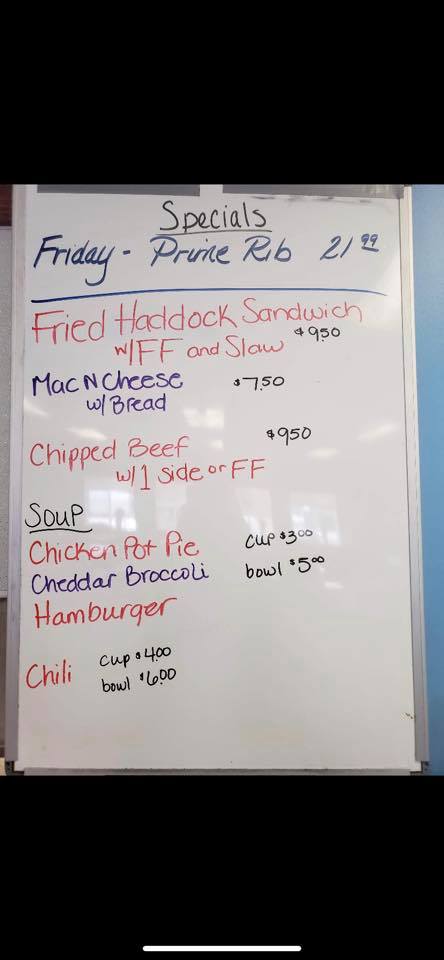 Specials
Friday - Prime Rib 21 99
Fried Haddock Sandwich
w/FF and Slaw $9.50
Mac N Cheese $7.50
w/ Bread
Chipped Beef $9.50
w/ 1 side or FF
Soup
Chicken Pot Pie cup $3.00
Cheddar Broccoli bowl $5.00
Hamburger
Chili cup $4.00
bowl $6.00